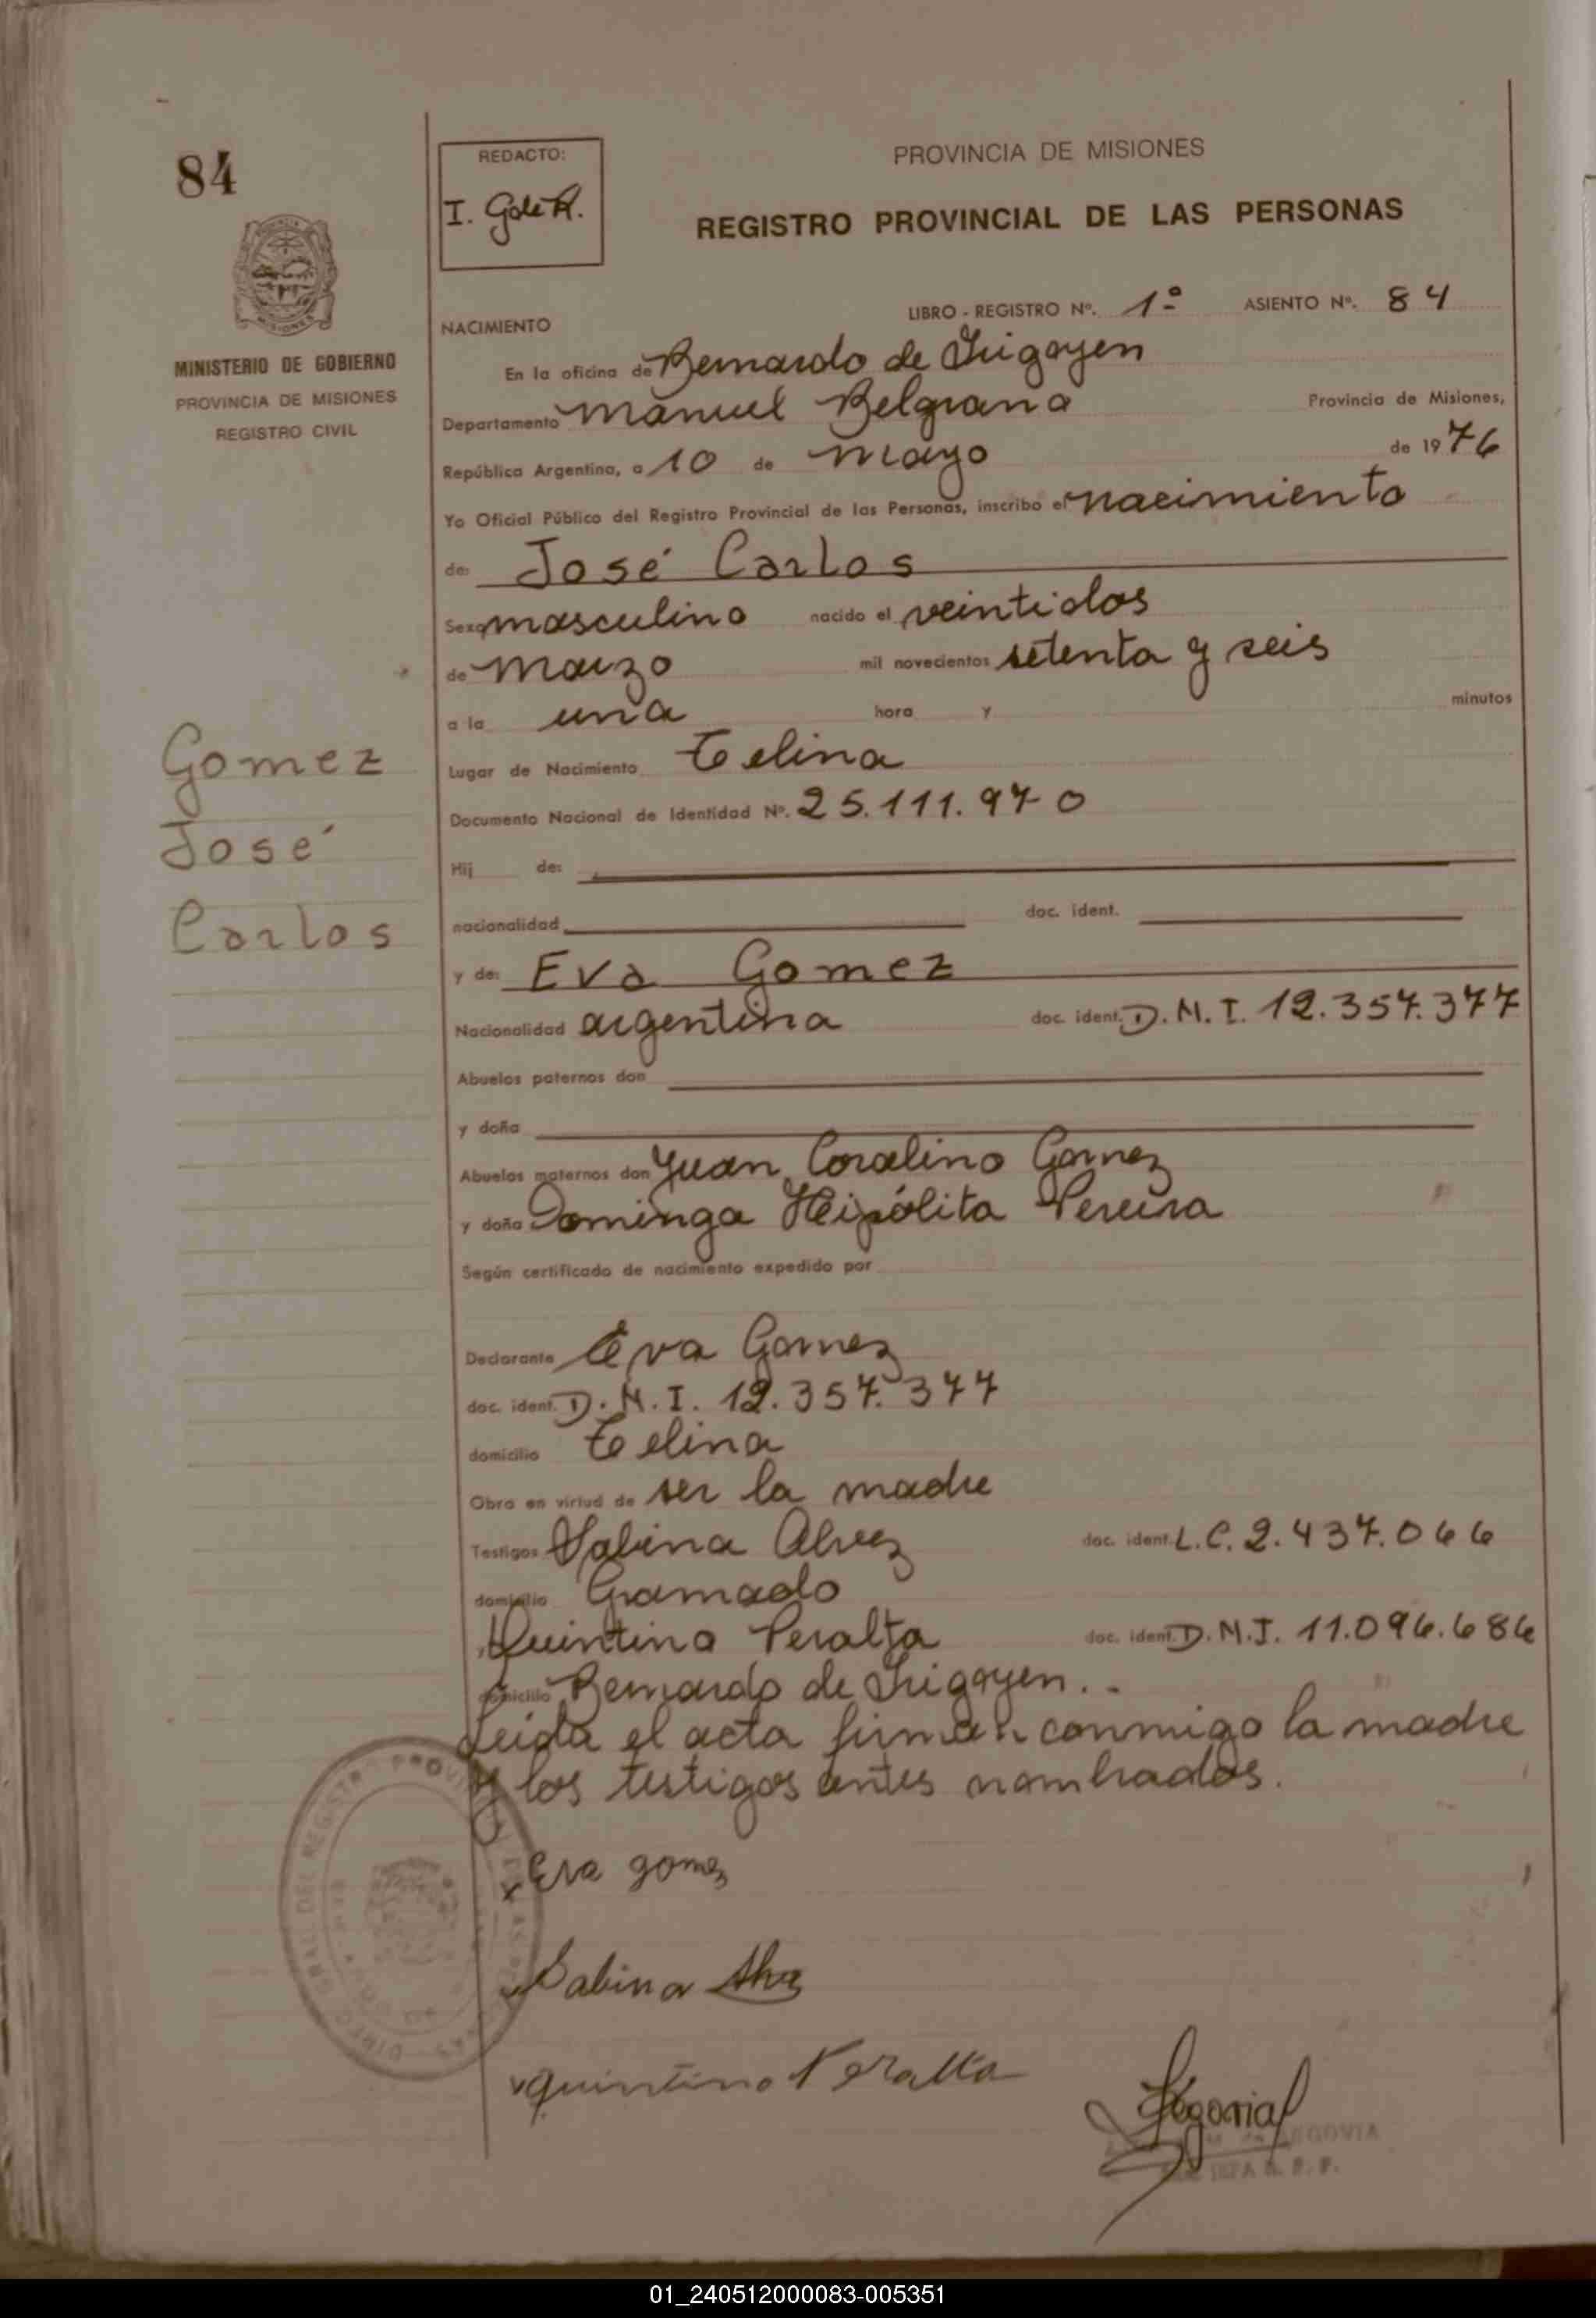 84
REDACTO:
I. Gde R.
PROVINCIA DE MISIONES
REGISTRO PROVINCIAL DE LAS PERSONAS
MINISTERIO DE GOBIERNO
PROVINCIA DE MISIONES
REGISTRO CIVIL
LIBRO - REGISTRO Nº. 1º ASIENTO Nº. 84
NACIMIENTO
En la oficina de Bernardo de Irigoyen
Departamento Manuel Belgrano Provincia de Misiones,
República Argentina, a 10 de Mayo de 1976
Yo Oficial Público del Registro Provincial de las Personas, inscribo el nacimiento
de: José Carlos
Sexo masculino nacido el veintidos
de Marzo mil novecientos setenta y seis
a la una hora y minutos
Lugar de Nacimiento Celina
Documento Nacional de Identidad Nº. 25.111.970
Hij de:
nacionalidad doc. ident.
y de: Eva Gomez
Nacionalidad argentina doc. ident. D.N.I. 12.357.377
Abuelos paternos don
y doña
Abuelos maternos don Juan Coralino Gomez
y doña Dominga Heipólita Pereira
Según certificado de nacimiento expedido por
Declarante Eva Gomez
doc. ident. D.N.I. 12.357.377
domicilio Celina
Obra en virtud de ser la madre
Testigos Sabina Alvez doc. ident. L.C. 2.437.066
domicilio Gramado
Quintino Peralta doc. ident. D.N.I. 11.096.686
domicilio Bernardo de Irigoyen..
Leida el acta firman conmigo la madre
y los testigos antes nombrados.
Gomez
José
Carlos
x Eva gomez
Sabina Alvez
Quintino Peralta
Segovia
SEGOVIA
01_240512000083-005351